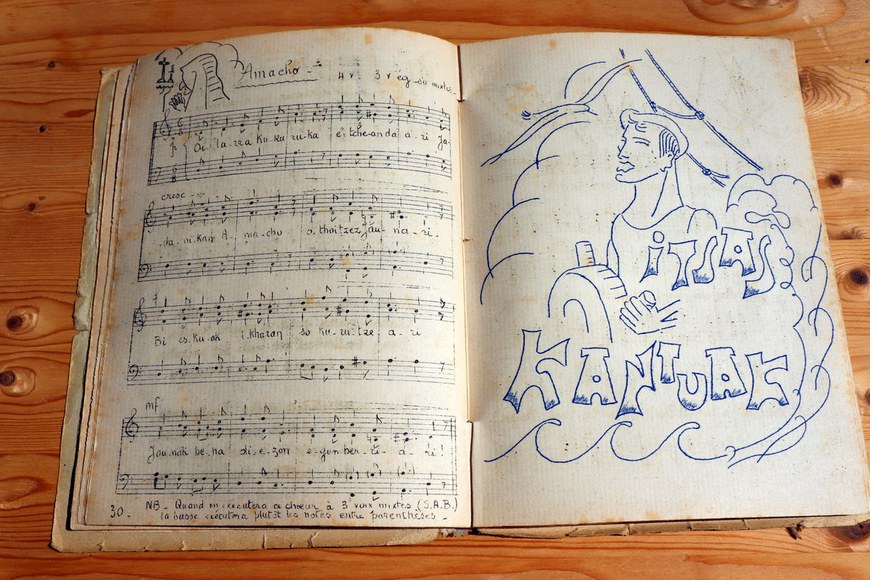 Amacho -
4 v. 3 v ég. ou mixtes
Oi-la-rra Ku-ku-ru-i-ka e-tche-an-da a-ri Ja-
cresc
da-ni-kan A-ma-cho o-thoi-tzez jau-na-ri.
f
Bi es-ku-ak i-kharan do ku-ru-tze a-ri
mf
Jau-nak be-ha di-e-zon e-gun ber-ri a-ri!
30. NB - Quand on exécutera ce chœur à 3 voix mixtes (S.A.B.)
la basse exécutera plutôt les notes entre parenthèses -
iTSAS
KANTUAK